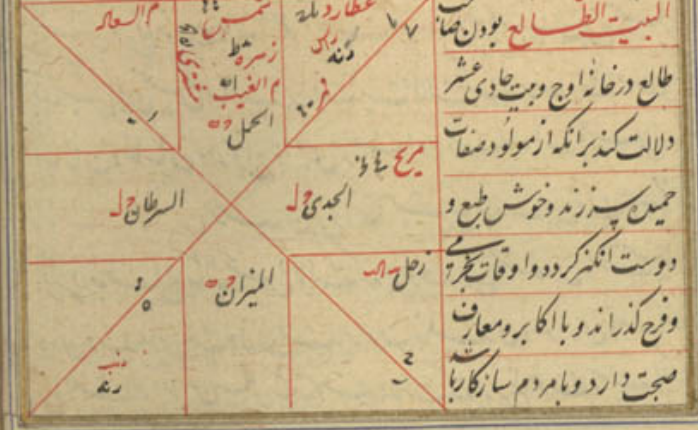 البيت الطالع بودن صاحب
طالع در خانه اوج وبيت حادى عشر
دلالت كند برانكه از مولود صفات
حميده سر زند و خوش طبع و
دوست انكيز كردد و اوقات بخرمى
و فرح كذراند و با اكابر و معارف
صحبت دارد و با مردم سازكار باشد
م السعاده
شمس
زهره
م الغيب
مشترى
الحمل
عطارد
راس
قمر
مريخ
الجدى
السرطان
زحل
الميزان
ذنب